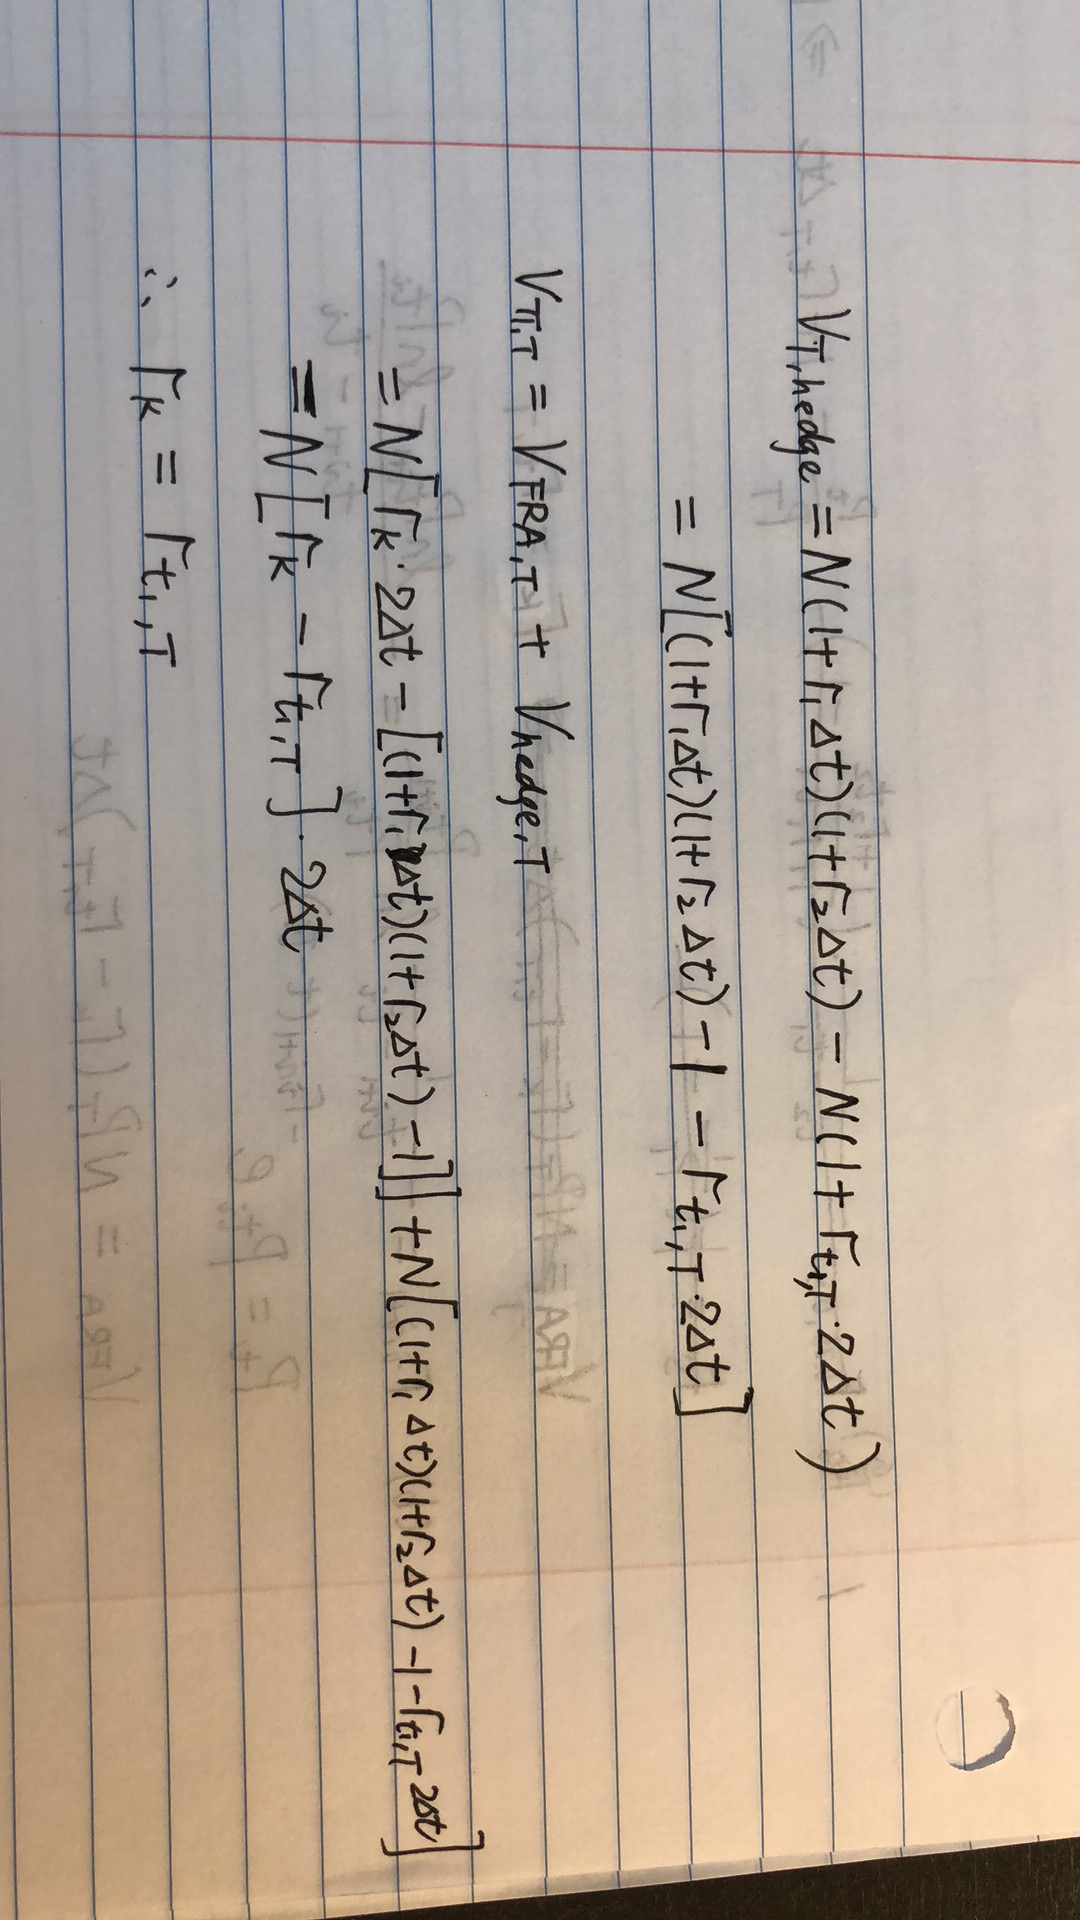 V_{T,hedge} = N(1+r_1Δt)(1+r_2Δt) - N(1+r_{t_1,T}·2Δt)
= N[(1+r_1Δt)(1+r_2Δt) - 1 - r_{t_1,T}·2Δt]
V_{π,T} = V_{FRA,T} + V_{hedge,T}
= N[r_k·2Δt - [(1+r_1Δt)(1+r_2Δt) - 1]] + N[(1+r_1Δt)(1+r_2Δt) - 1 - r_{t_1,T}2Δt]
= N[r_k - r_{t_1,T}]·2Δt
∴ r_k = r_{t_1,T}